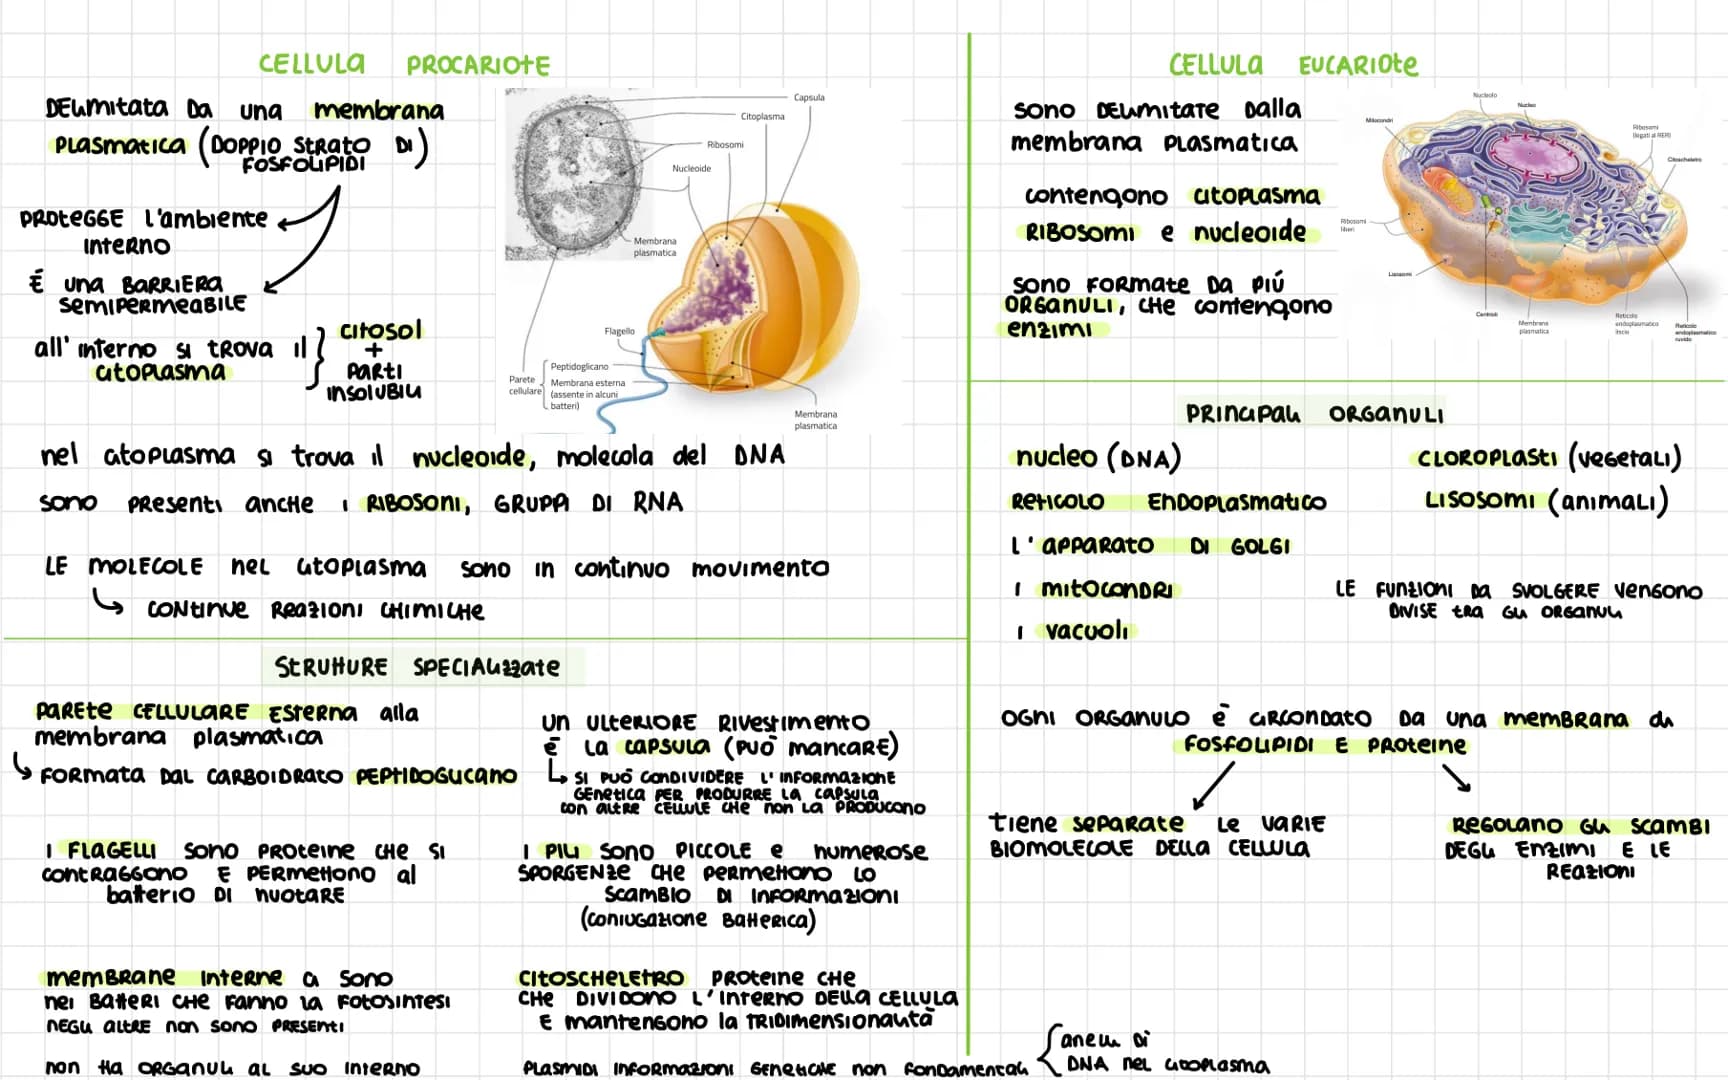 CELLULA PROCARIOTE
DELIMITATA DA UNA MEMBRANA
PLASMATICA (DOPPIO STRATO DI
FOSFOLIPIDI)
PROTEGGE L'AMBIENTE
INTERNO
É UNA BARRIERA
SEMIPERMEABILE
ALL'INTERNO SI TROVA IL
CITOPLASMA
CITOSOL
+
PARTI
INSOLUBILI
Capsula
Citoplasma
Ribosomi
Nucleoide
Membrana
plasmatica
Flagello
Parete
cellulare
Peptidoglicano
Membrana esterna
(assente in alcuni
batteri)
Membrana
plasmatica
NEL CITOPLASMA SI TROVA IL NUCLEOIDE, MOLECOLA DEL DNA
SONO PRESENTI ANCHE I RIBOSONI, GRUPPI DI RNA
LE MOLECOLE NEL CITOPLASMA SONO IN CONTINUO MOVIMENTO
CONTINUE REAZIONI CHIMICHE
STRUTTURE SPECIALIZZATE
PARETE CELLULARE ESTERNA ALLA
MEMBRANA PLASMATICA
FORMATA DAL CARBOIDRATO PEPTIDOGLICANO
UN ULTERIORE RIVESTIMENTO
È LA CAPSULA (PUÒ MANCARE)
SI PUÒ CONDIVIDERE L'INFORMAZIONE
GENETICA PER PRODURRE LA CAPSULA
CON ALTRE CELLULE CHE NON LA PRODUCONO
I FLAGELLI SONO PROTEINE CHE SI
CONTRAGGONO E PERMETTONO AL
BATTERIO DI NUOTARE
I PILI SONO PICCOLE E NUMEROSE
SPORGENZE CHE PERMETTONO LO
SCAMBIO DI INFORMAZIONI
(CONIUGAZIONE BATTERICA)
MEMBRANE INTERNE CI SONO
NEI BATTERI CHE FANNO LA FOTOSINTESI
NEGLI ALTRE NON SONO PRESENTI
CITOSCHELETRO PROTEINE CHE
CHE DIVIDONO L'INTERNO DELLA CELLULA
E MANTENGONO LA TRIDIMENSIONALITÀ
NON HA ORGANULI AL SUO INTERNO
PLASMIDI INFORMAZIONI GENETICHE NON FONDAMENTALI
ANELLI DI
DNA NEL CITOPLASMA
CELLULA EUCARIOTE
SONO DELIMITATE DALLA
MEMBRANA PLASMATICA
CONTENGONO CITOPLASMA
RIBOSOMI E NUCLEOIDE
SONO FORMATE DA PIÚ
ORGANULI, CHE CONTENGONO
ENZIMI
Nucleolo
Nucleo
Mitocondri
Ribosomi
(legati al RER)
Citoscheletro
Ribosomi
liberi
Lisosomi
Centrioli
Membrana
plasmatica
Reticolo
endoplasmatico
liscio
Reticolo
endoplasmatico
ruvido
PRINCIPALI ORGANULI
NUCLEO (DNA)
RETICOLO ENDOPLASMATICO
L'APPARATO DI GOLGI
I MITOCONDRI
I VACUOLI
CLOROPLASTI (VEGETALI)
LISOSOMI (ANIMALI)
LE FUNZIONI DA SVOLGERE VENGONO
DIVISE TRA GLI ORGANULI
OGNI ORGANULO È CIRCONDATO DA UNA MEMBRANA DI
FOSFOLIPIDI E PROTEINE
TIENE SEPARATE LE VARIE
BIOMOLECOLE DELLA CELLULA
REGOLANO GLI SCAMBI
DEGLI ENZIMI E LE
REAZIONI